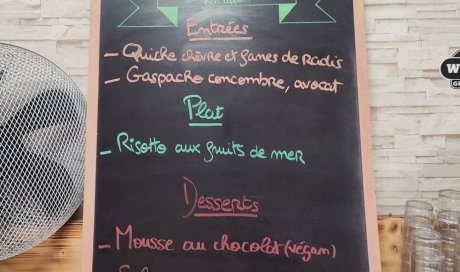 Bon appétit
Entrées
- Quiche chèvre et fanes de Radis
- Gaspacho concombre, avocat
Plat
- Risotto aux fruits de mer
Desserts
- Mousse au chocolat (végan)